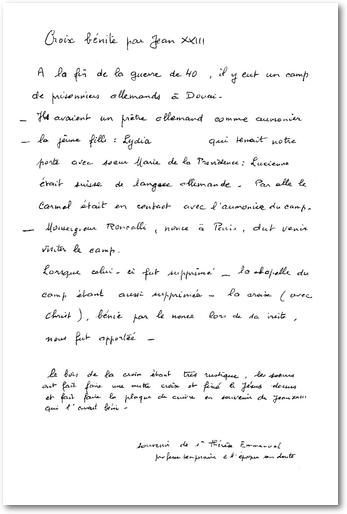 Croix bénite par Jean XXIII
A la fin de la guerre de 40, il y eut un camp
de prisonniers allemands à Douai.
_ Ils avaient un prêtre allemand comme aumonier
_ la jeune fille : Lydia qui tenait notre
porte avec soeur Marie de la Providence : Lucienne
était suisse de langue allemande. Par elle le
Carmel était en contact avec l'aumonier du camp.
_ Monseigneur Roncalli, nonce à Paris, dut venir
visiter le camp.
Lorsque celui-ci fut supprimé _ la chapelle du
camp étant aussi supprimée _ la croix (avec
Christ), bénie par le nonce lors de sa visite,
nous fut apportée _
Le bois de la croix étant très rustique, les soeurs
ont fait faire une autre croix et fixé le Jésus dessus
et fait faire la plaque de cuivre en souvenir de Jean XXIII
qui l'avait béni.
souvenir de Sr Thérèse Emmanuel
professe temporaire à l'époque sans doute